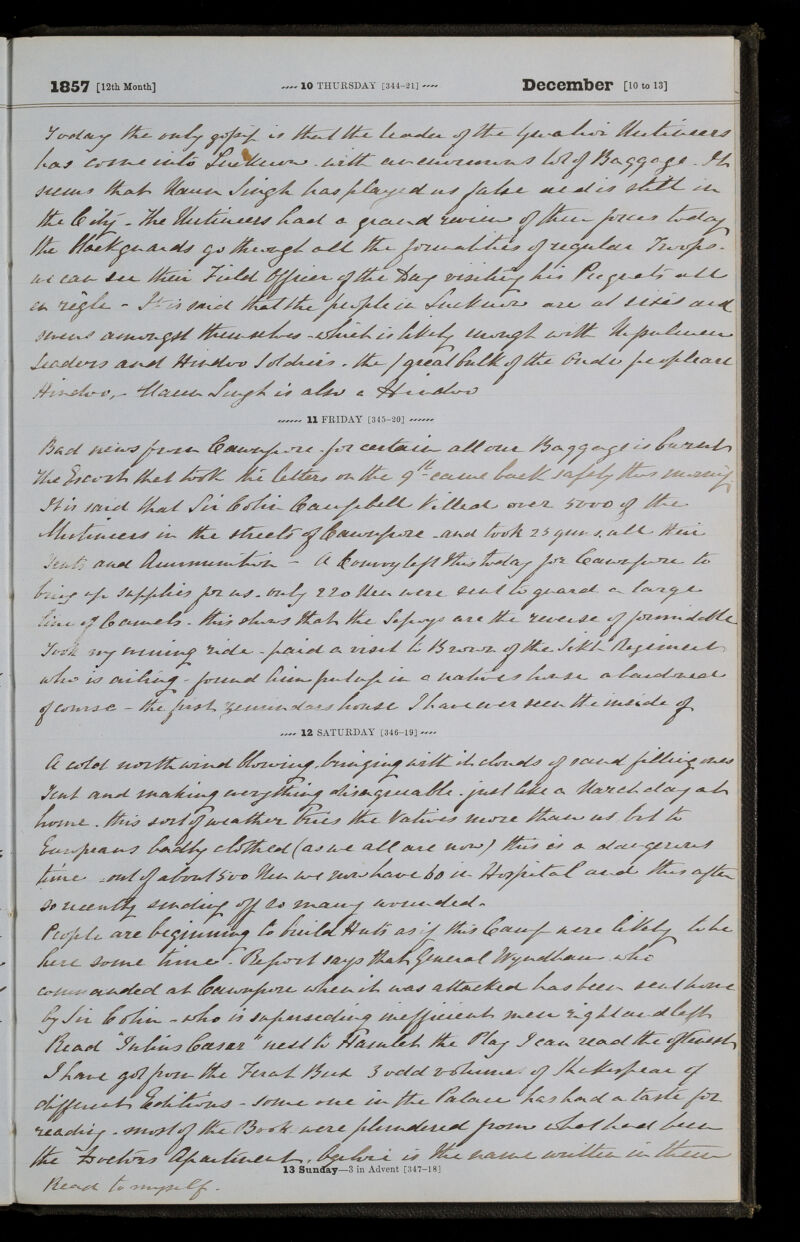 1857 [12th Month] ---- 10 THURSDAY [344-21] ---- December [10 to 13]
Today the only gossip is that the leader of the Gwalior Mutineers
has come into Lucknow with an enormous lot of Baggage. It
seems that Maun Singh has played us false and is still in
the City. The Mutineers had a grand review of their forces today
the Blackguards go through all the formalities of regular Troops.
we can see their Field Officer of the Day visiting his Picquets all
en règle - It is said that the people in Lucknow are at sixes and
sevens amongst themselves - which is likely enough with
Leaders and Hindoo Soldiers. the great bulk of the Oude people are
Hindoo, - Maun Singh is also a Hindoo
------ 11 FRIDAY [345-20] ------
Bad news from Cawnpore. for certain all our Baggage is burnt
The Escort that took the letters on the 9th came back safely this morning
It is said that Sir Colin Campbell killed over 5000 of the
Mutineers in the streets of Cawnpore - and took 25 guns, all their
Tents and Ammunition - A Convoy left this today for Cawnpore to
bring up supplies for us. only 220 Men were sent to guard a large
line of Camels. this shows that the Sepoys are the reverse of formidable
Took my evening ride - paid a visit to Brown of the Sikh Regiment
who is ailing - found him put up in a natives house abandoned
of course - the first zemindars house I have ever seen the inside of
---- 12 SATURDAY [346-19] ----
A cold north wind blowing, bringing with it clouds of sand filling ones
Tent and making everything disagreeable. just like a March day at
home. this sort of weather tries the Natives more than us. but to
Europeans badly clothed (as we all are now) this is a dangerous
time - out of about 500 Men we now have 60 in Hospital and this after
so recently sending off so many wounded.
People are beginning to build Huts as if this Camp were likely to be
here some time. Report says that General Wyndham who
commanded at Cawnpore when it was attacked has been sent home
by Sir Colin - who is superseding inefficient men right and left
Read "Julius Casar" next to Hamlet the Play I can read the oftenest
I have got from the 3 odd volumes of Shakespear of
different Editions - some one in the Palace has had a taste for
reading. most of the Book were plundered from what had been
the Doctors Apartment. is the name written in them
13 Sunday—3 in Advent [347-18]
Read to myself.